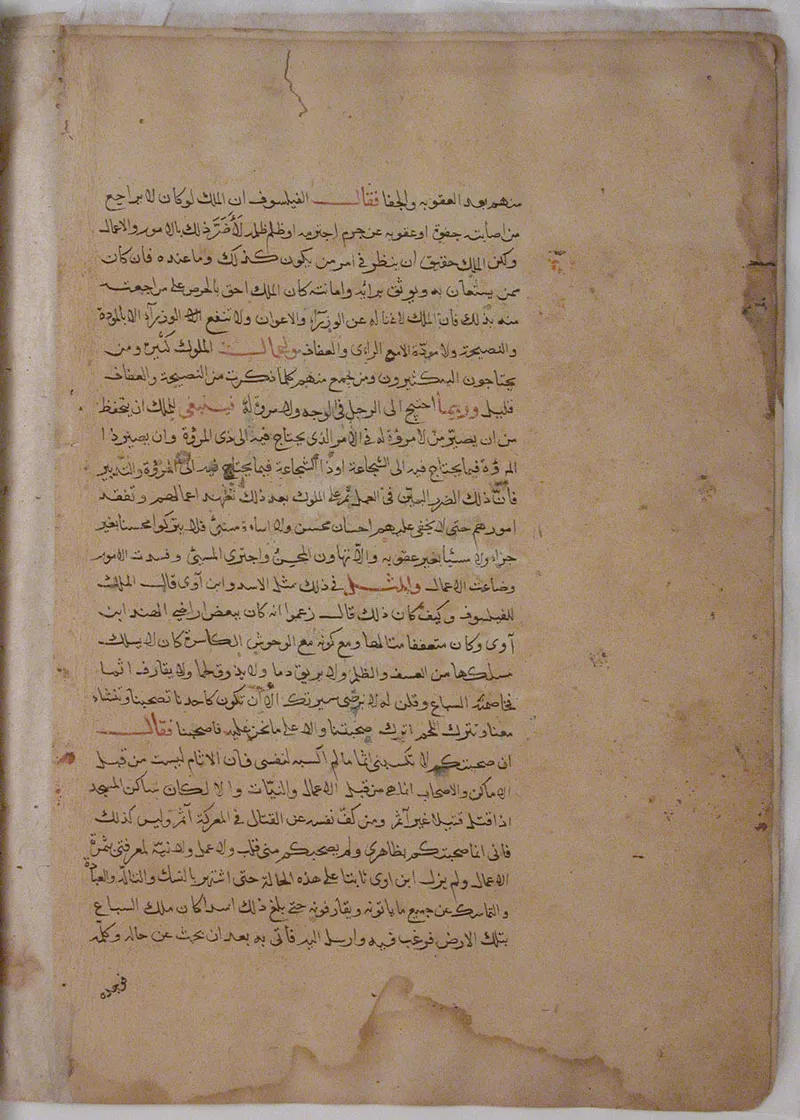 منهم بعد العقوبه والجفا فقال الفيلسوف ان الملك لو كان لا يراجع
من اصابته جفوة او عقوبه عن جرم اجترمه او ظلم ظلمه لأضَرَّ ذلك بالامور والاعمال
ولكن الملك حقيق ان ينظر في امر من يكون كذلك وما عنده فان كان
ممن يستعان به ويوثق برائه وامانته كان الملك احق بالحرص على مراجعته
منه بذلك فان الملك لا غنا له عن الوزراء والاعوان ولا تنفع الوزراء الا بالمودة
والنصيحة ولا مودة الا مع الراى والعفاف واعمال الملوك كثيرة ومن
يحتاجون اليه كثيرون ومن جمع منهم كلما ذكرت من النصيحة والعفاف
قليل وربما احتيج الى الرجل في الوجه ولا مروة له فينبغي للملك ان يتحفظ
من ان يصير من لا مروة له في الامر الذي يحتاج فيه الى ذى المروة وان يصير ذا
المروة فيما يحتاج فيه الى الشجاعة اوذا الشجاعة فيما يحتاج فيه الى المروة والتدبير
فان ذلك الضرر البين في العمل ثم على الملوك بعد ذلك تعهد اعمالهم وتفقد
امورهم حتى لا يخفى عليهم احسان محسن ولا اساءة مسئ فلا يتركوا محسنا بغير
جزاء ولا مسئا بغير عقوبه والا تهاون المحسن واجترى المسئ وفسدت الامور
وضاعت الاعمال والمثل في ذلك مثل الاسد وابن آوى قال الملك
للفيلسوف وكيف كان ذلك قال زعموا انه كان ببعض اراضي الهند ابن
آوى وكان متعففا متالها ومع كونه مع الوحوش الكاسرة كان لا يسلك
مسلكها من العسف والظلم ولا يريق دما ولا يذوق لحما ولا يقارف اثما
فخاصمته السباع وقلن له لا نرضى سيرتك الا ان تكون كاحدنا تصحبنا وتنشاء
معنا وتترك صحبتنا والا على ما نحن عليه فاصحبنا فقال
ان صحبتكم لا تكسبنى اثما ما لم اكسبه لنفسى فان الاثام ليست من قبل
الاماكن والاصحاب انما هي من قبل الاعمال والنيات والا لكان ساكن المسجد
اذا قتل قتيلا غير آثم ومن كف نفسه عن القتال في المعركة آثم وليس كذلك
فانى انما صحبتكم بظاهرى ولم يصحبكم منى قلب ولا عمل ولا نية لمعرفتى بثمرة
الاعمال ولم يزل ابن اوى ثابتا على هذه الحالة حتى اشتهر بالنسك والتاله والعبادة
والتماسك عن جميع ما ياتونه ويقارفونه حتى بلغ ذلك اسدا كان ملك السباع
بتلك الارض فرغب فيه وارسل اليه فأتى به بعد ان بحث عن حاله وكلمه
فوجده